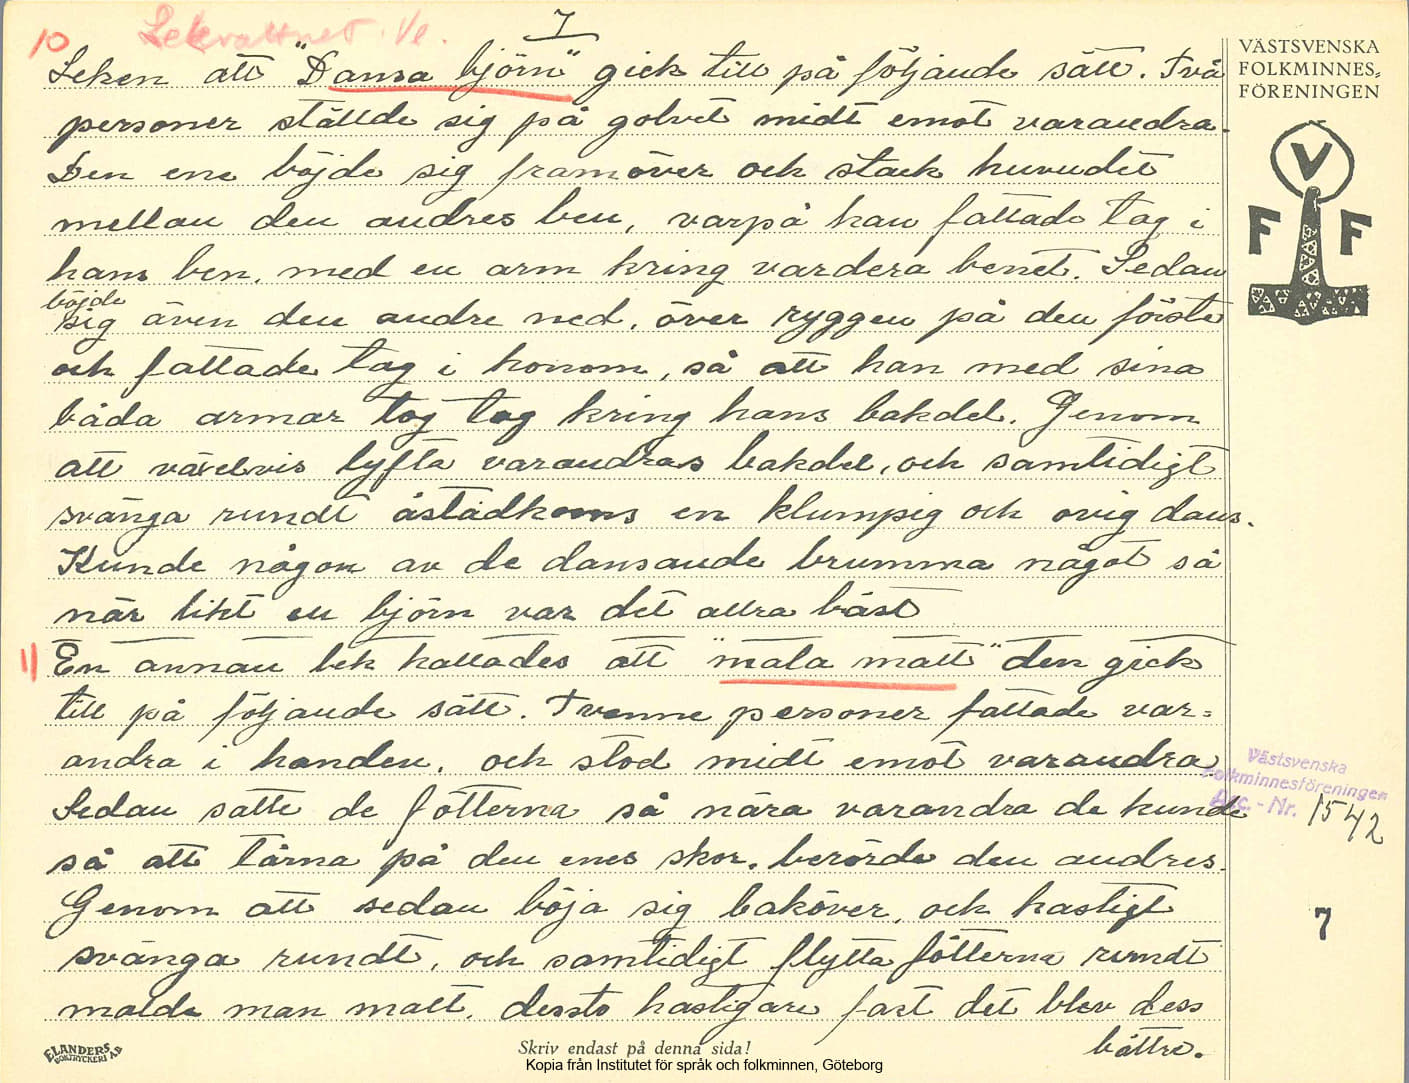 7
10 Lekvattnet. Vl.
Leken att "Dansa björn" gick till på följande sätt. Två
personer ställde sig på golvet midt emot varandra.
Den ene böjde sig framöver och stack huvudet
mellan den andres ben, varpå han fattade tag i
hans ben, med en arm kring vardera benet. Sedan
böjde
sig även den andre ned, över ryggen på den förste
och fattade tag i honom, så att han med sina
båda armar tog tag kring hans bakdel. Genom
att växelvis lyfta varandras bakdel, och samtidigt
svänga rundt åstadkoms en klumpig och ovig dans.
Kunde någon av de dansande brumma något så
när likt en björn var det allra bäst
11 En annan lek kallades att "mala malt" den gick
till på följande sätt. Tvenne personer fattade var=
andra i handen, och stod midt emot varandra
Sedan satte de fötterna så nära varandra de kunde
så att tårna på den enes skor, berörde den andres.
Genom att sedan böja sig baköver, och hastigt
svänga rundt, och samtidigt flytta fötterna rundt
malde man malt, dessto hastigare fast det blev dess
bättre.
VÄSTSVENSKA
FOLKMINNES-
FÖRENINGEN
V
F F
Västsvenska
Folkminnesföreningen
Acc. - Nr. 1542
7
ELANDERS
BOKTRYCKERI AB
Skriv endast på denna sida!
Kopia från Institutet för språk och folkminnen, Göteborg